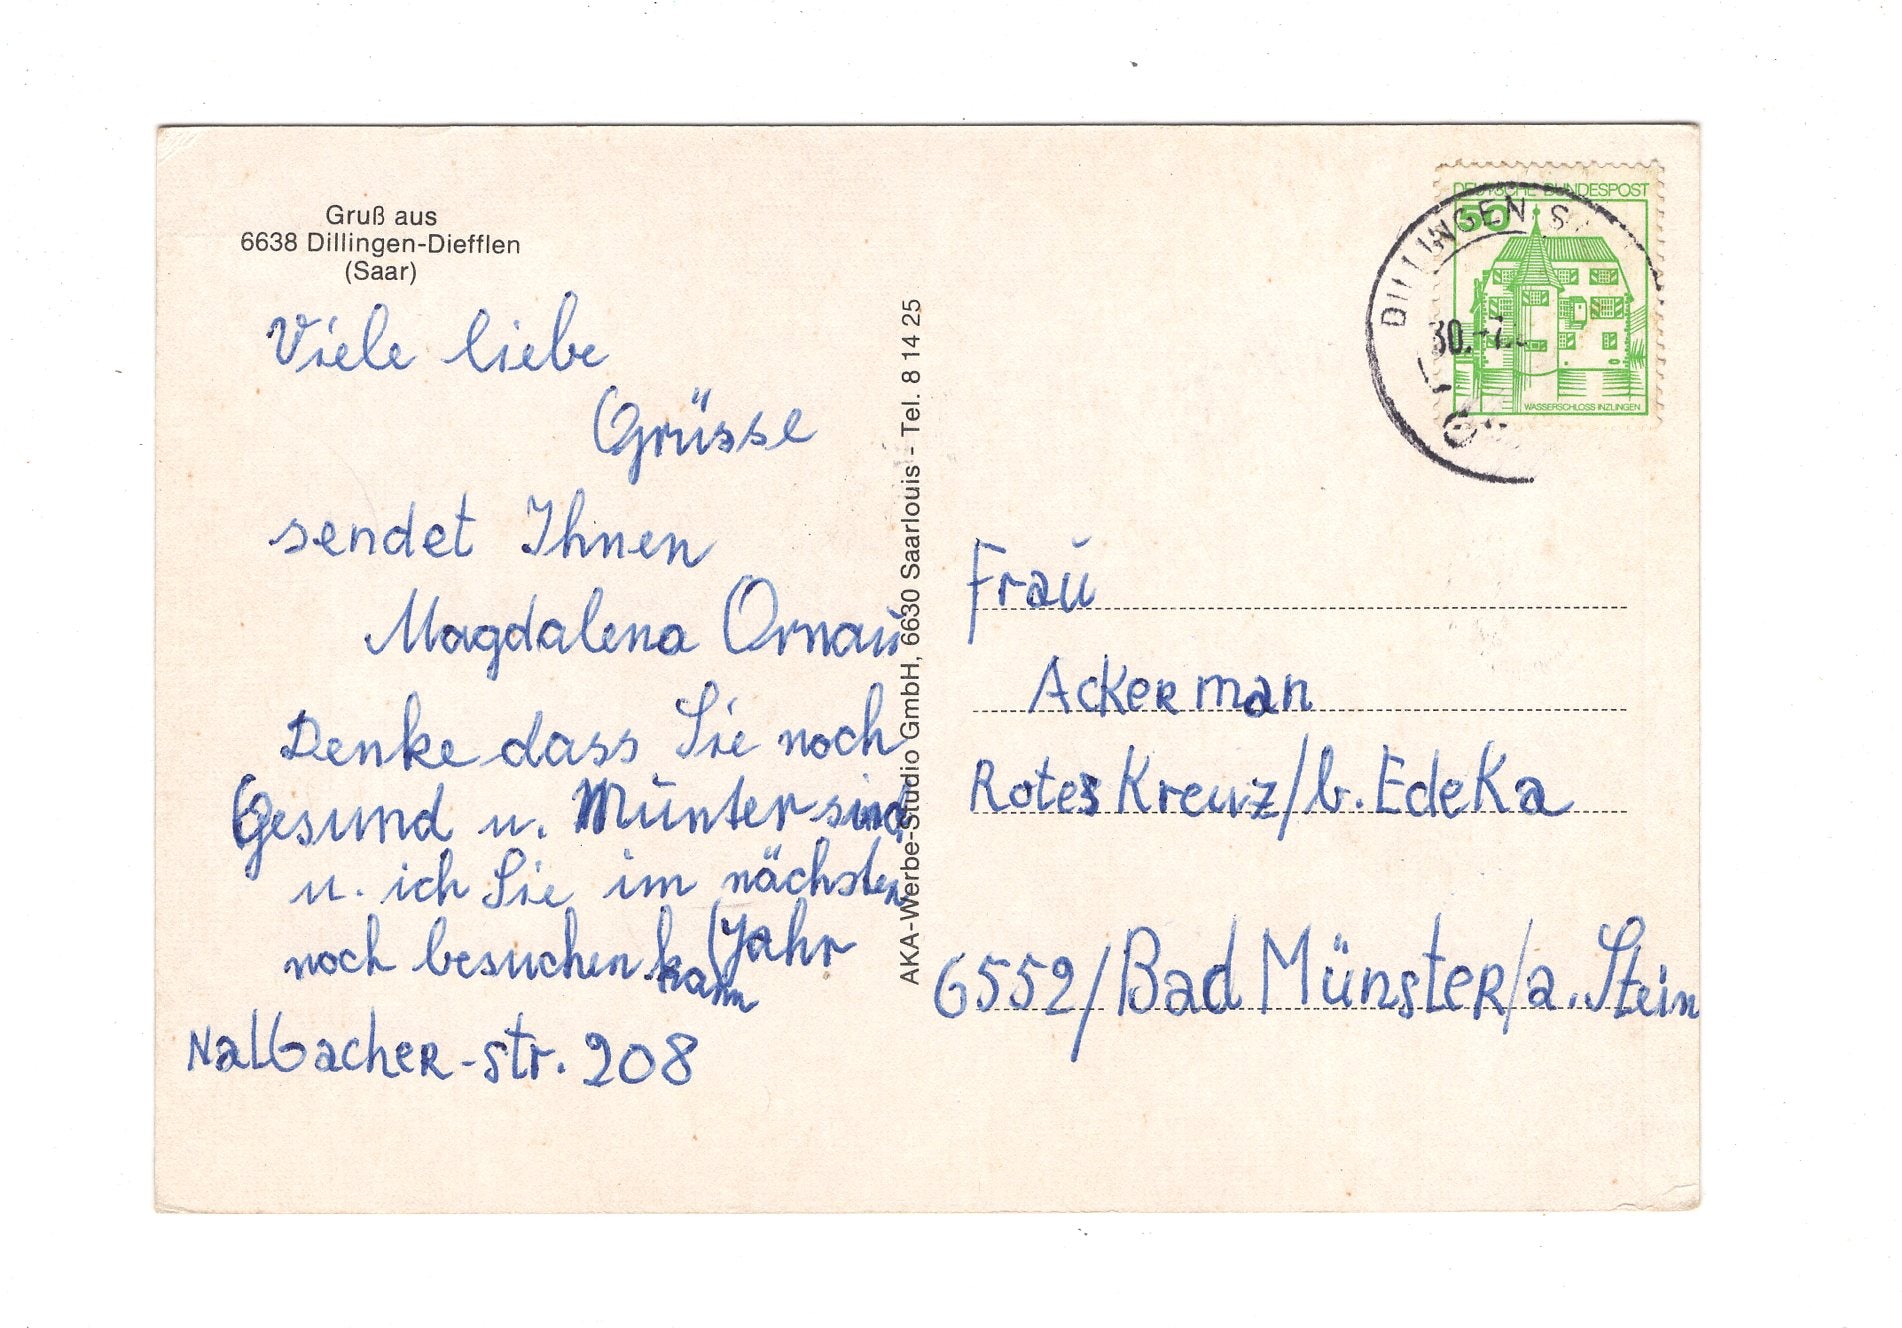 Gruß aus
6638 Dillingen-Diefflen
(Saar)
Viele liebe
Grüsse
sendet Ihnen
Magdalena Ornau
Denke dass Sie noch
Gesund u. Münter sind
u. ich Sie im nächsten
Jahr
noch besuchen kann
Nalbacher-str. 208
AKA-Werbe-Studio GmbH, 6630 Saarlouis - Tel. 8 14 25
DEUTSCHE BUNDESPOST
50
WASSERSCHLOSS INZLINGEN
DILLINGEN
30.
Frau
Ackerman
Rotes Kreuz/b. Edeka
6552/Bad Münster/a. Stein